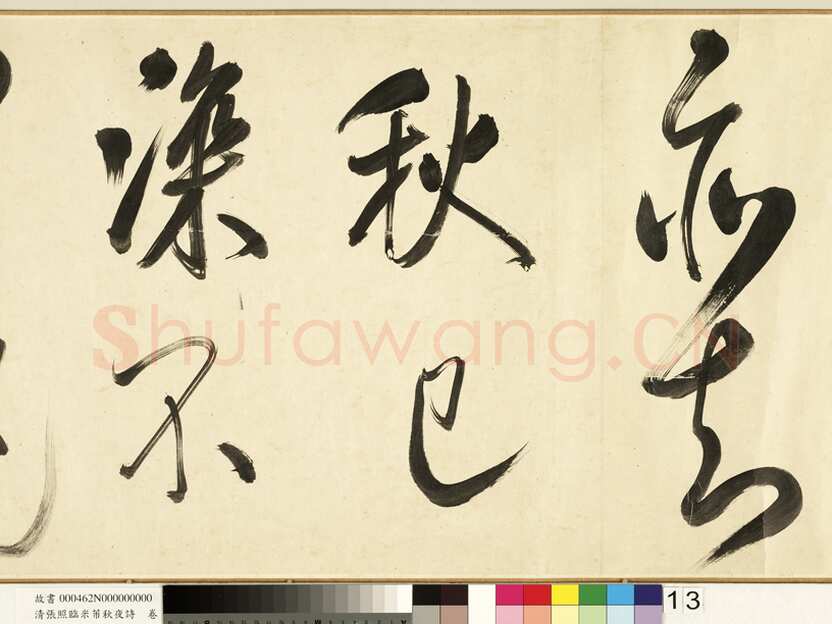 亦
秋已
深不
Shufawang.CN
故書 000462N000000000
清張照臨米芾秋夜詩 卷
13